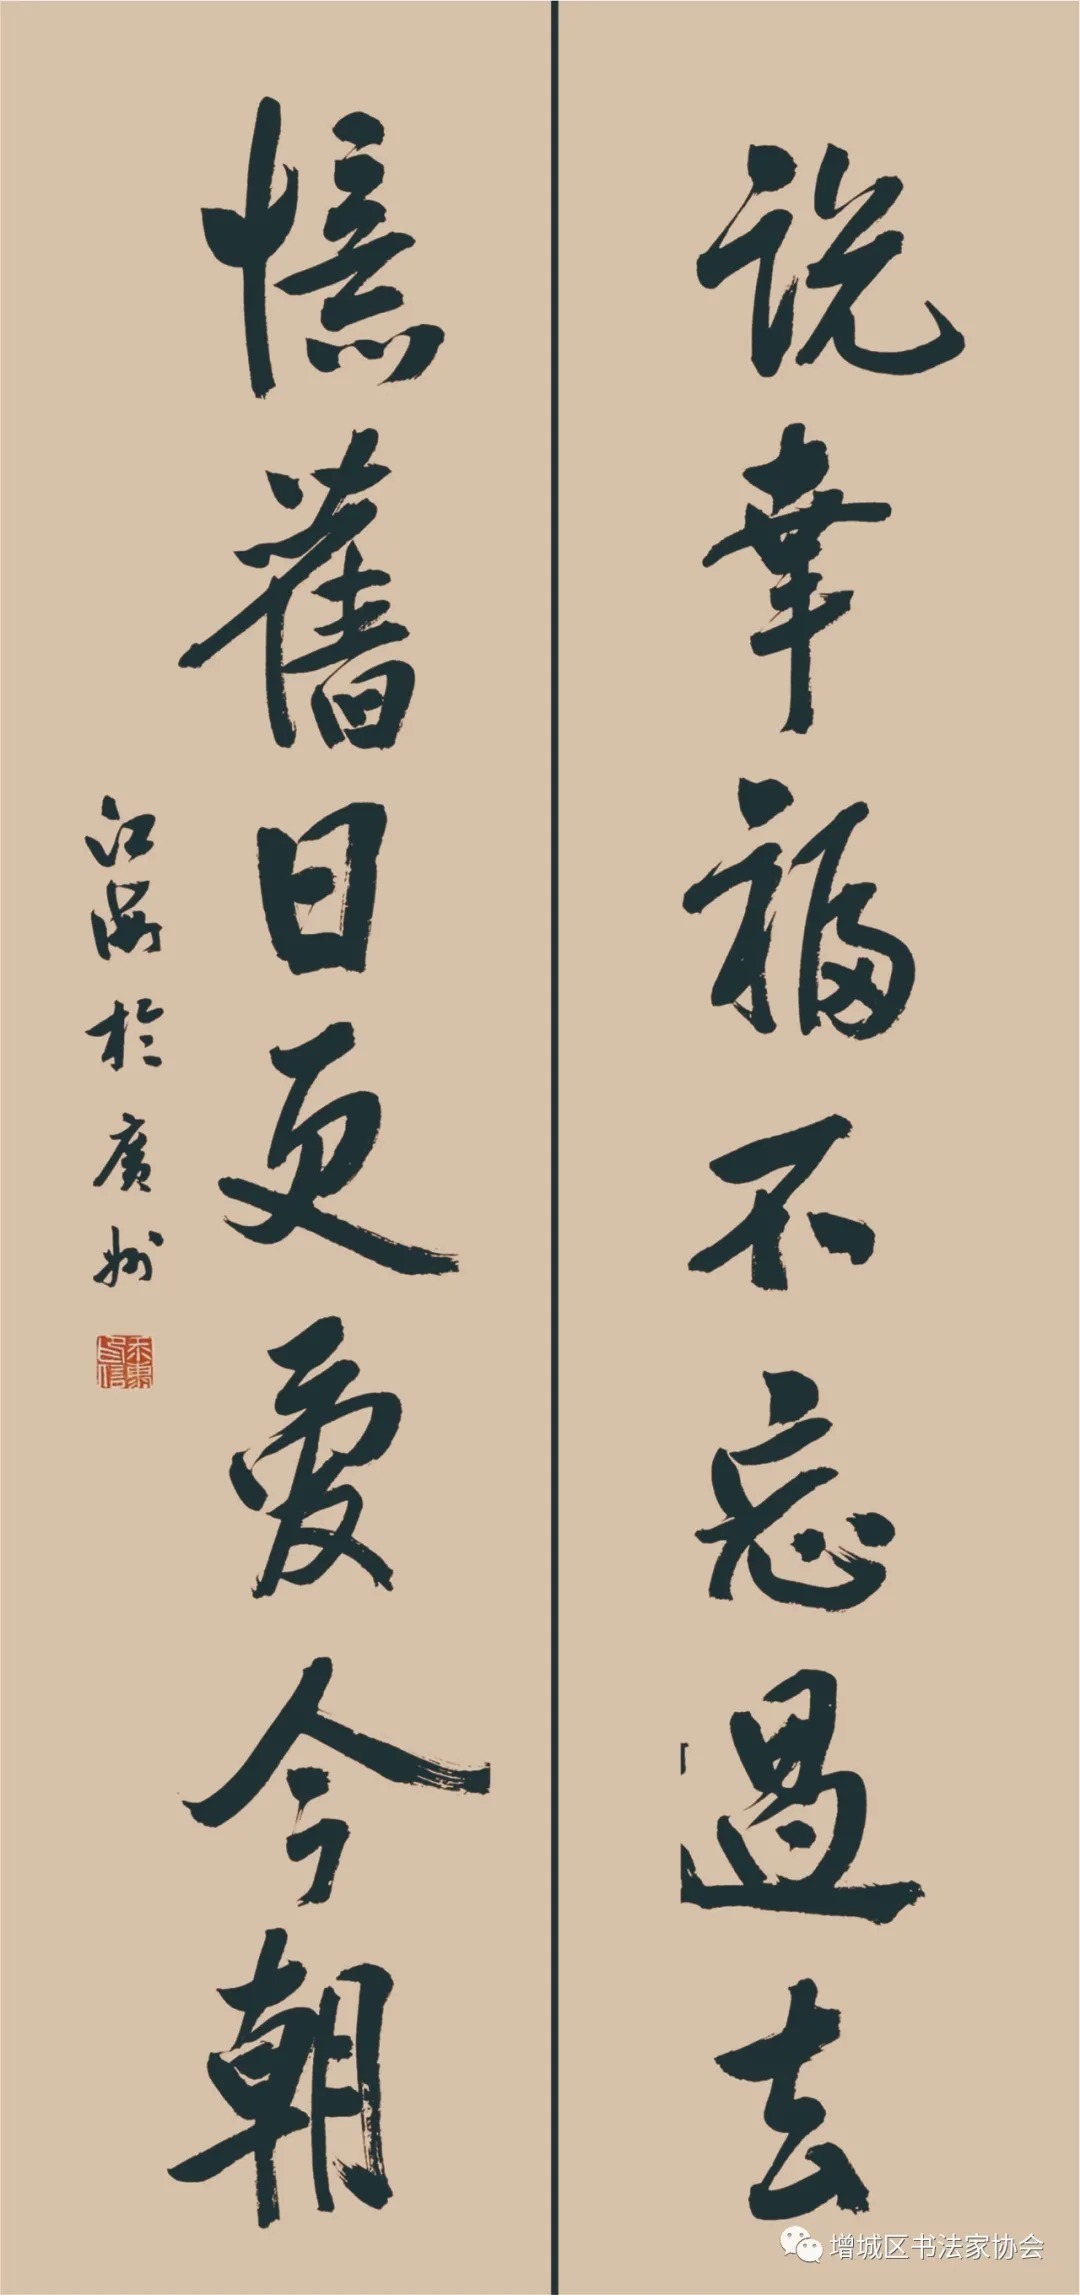 説幸福不忘過去
憶舊日更愛今朝
江海於廣州
增城区书法家协会